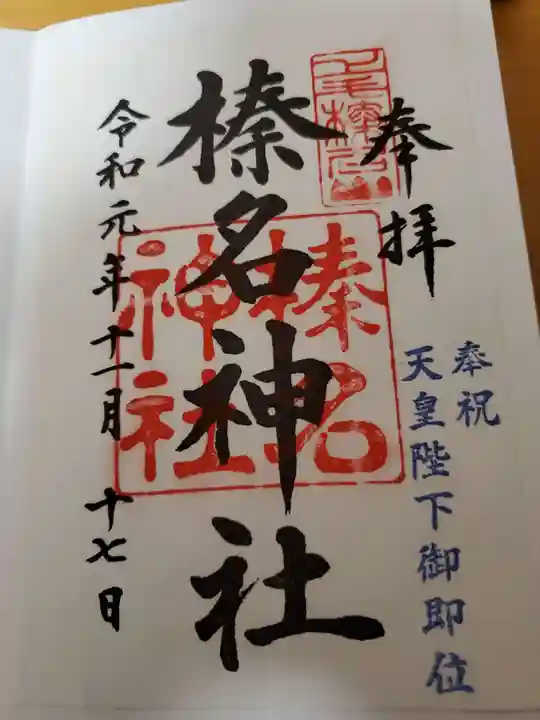 奉拝
奉祝
天皇陛下御即位
上毛榛名山
榛名神社
榛名
神社
令和元年十一月十七日